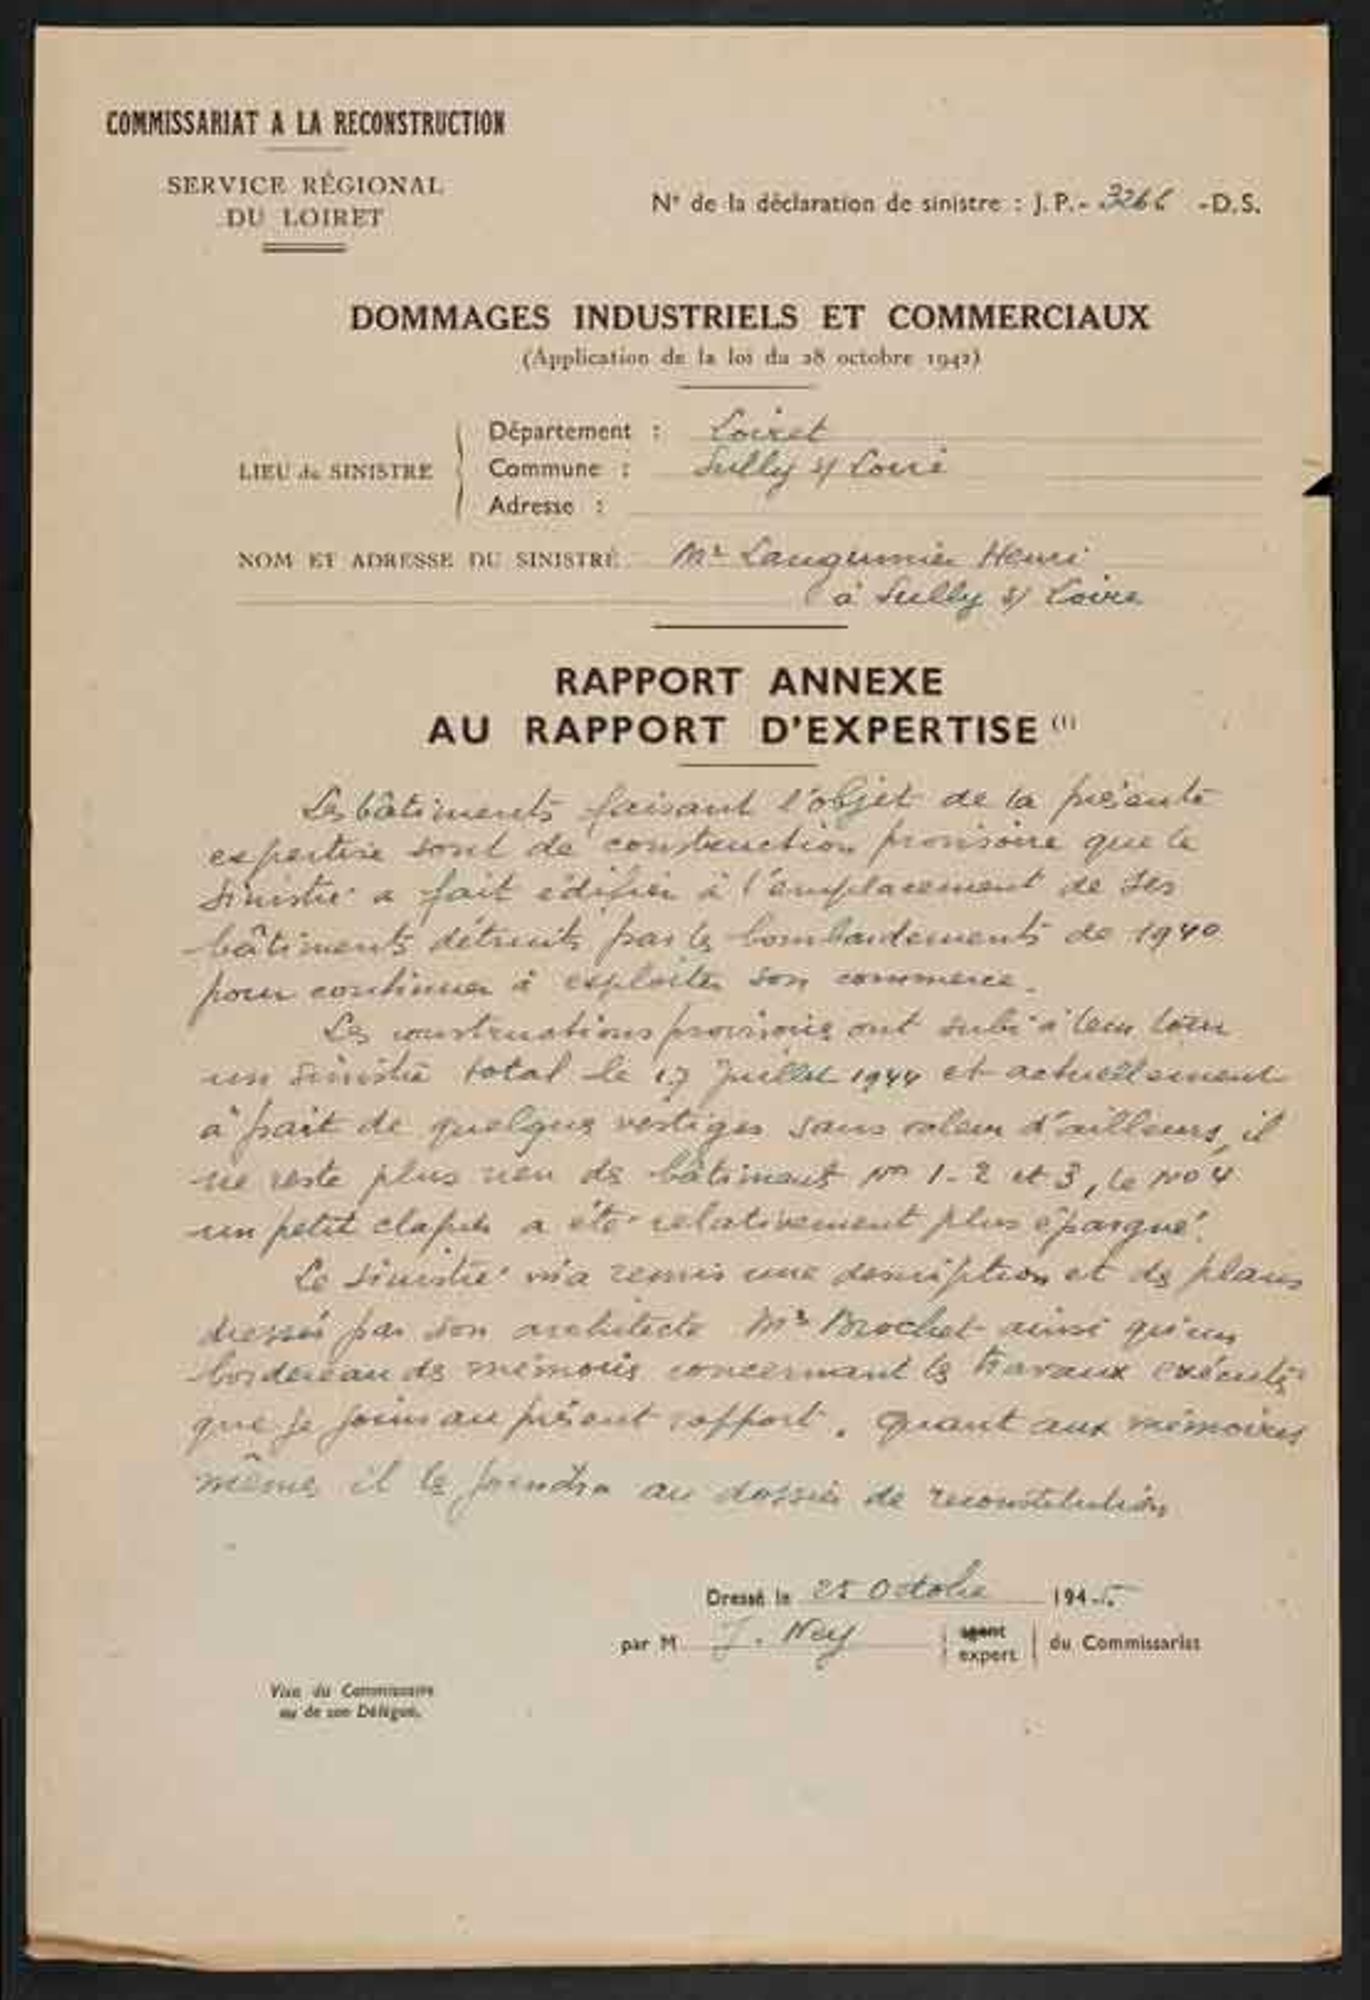 COMMISSARIAT A LA RECONSTRUCTION
SERVICE RÉGIONAL
DU LOIRET
N° de la déclaration de sinistre : J. P.- 3266 -D. S.
DOMMAGES INDUSTRIELS ET COMMERCIAUX
(Application de la loi du 28 octobre 1942)
LIEU du SINISTRE
Département : Loiret
Commune : Sully s/ Loire
Adresse :
NOM ET ADRESSE DU SINISTRÉ Mr Laugumier Henri
à Sully s/ Loire
RAPPORT ANNEXE
AU RAPPORT D'EXPERTISE (1)
Les bâtiments faisant l'objet de la présente
expertise sont de construction provisoire que le
Sinistré a fait édifier à l'emplacement de ses
bâtiments détruits par les bombardements de 1940
pour continuer à exploiter son commerce.
Les constructions provisoires ont subi à leur tour
un sinistre total le 17 Juillet 1944 et actuellement
à part de quelques vestiges sans valeur d'ailleurs, il
ne reste plus rien des bâtiments Nos 1-2 et 3, le No 4
un petit clapier a été relativement plus épargné.
Le Sinistré m'a remis une description et des plans
dressés par son architecte Mr Brochet ainsi qu'un
bordereau des mémoires concernant les travaux exécutés
que je joins au présent rapport. Quant aux mémoires
même il les joindra au dossier de reconstitution
Dressé le 25 Octobre 1945
par M J. Ney agent expert du Commissariat
Visa du Commissaire
ou de son Délégué.